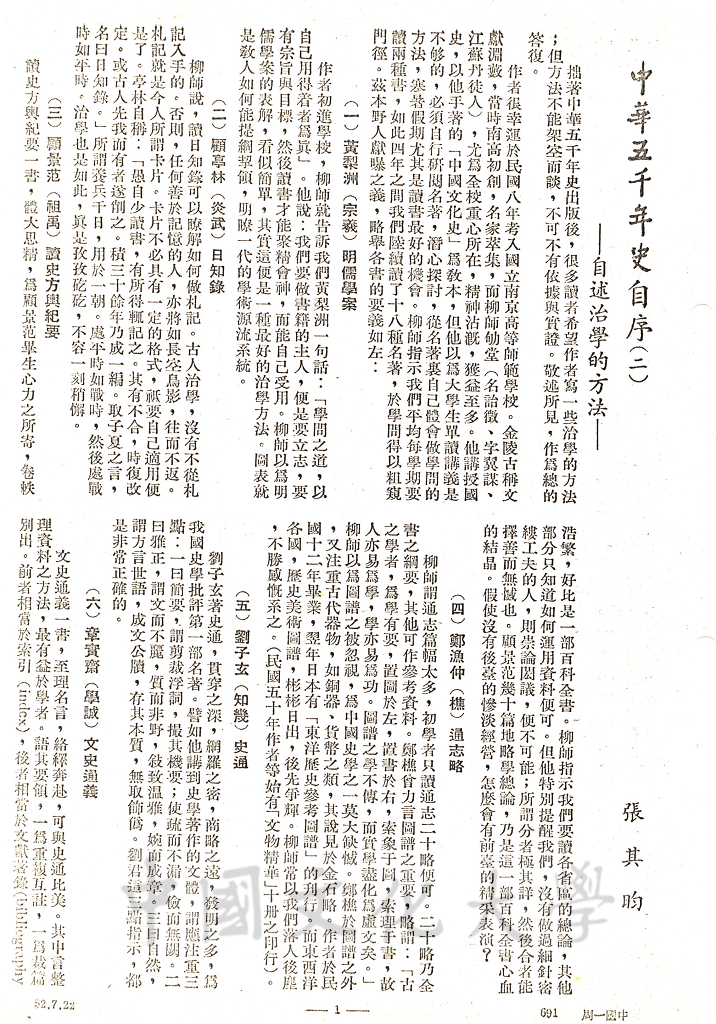 中華五千年史自序(二)
——自述治學的方法——
張其昀
拙著中華五千年史出版後,很多讀者希望作者寫一些治學的方法
;但方法不能架空而談,不可不有依據與實證。敬述所見,作為總的
答復。
作者很幸運於民國八年考入國立南京高等師範學校。金陵古稱文
獻淵藪,當時南高初創,名家萃集,而柳師劬堂(名詒徵、字翼謀、
江蘇丹徒人),尤為全校重心所在,精神沾溉,獲益至多。他講授國
史,以他手著的「中國文化史」為教本,但他以為大學生單讀講義是
不够的,必須自行研閱名著,潛心探討,從名著裏自己體會做學問的
方法,寒暑假期尤其是讀書最好的機會。柳師指示我們平均每學期要
讀兩種書,如此四年之間我們陸續讀了十八種名著,於學問得以粗窺
門徑。茲本野人獻曝之義,略舉各書的要義如左:
(一)黃梨洲(宗羲)明儒學案
作者初進學校,柳師就告訴我們黃梨洲一句話:「學問之道,以
自己用得着者為眞」。他說:我們要做書籍的主人,便是要立志,要
有宗旨與目標,然後讀書才能聚精會神,而能自己受用。柳師以為明
儒學案的表解,看似簡單,其實這便是一種最好的治學方法。圖表就
是教人如何能提綱挈領,明瞭一代的學術源流系統。
(二)顧亭林(炎武)日知錄
柳師說,讀日知錄可以瞭解如何做札記。古人治學,沒有不從札
記入手的。否則,任何善於記憶的人,亦將如長空鳥影,往而不返。
札記就是今人所謂卡片。卡片不必具有一定的格式,祇要自己適用便
是了。亭林自稱:「愚自少讀書,有所得輒記之。其有不合,時復改
定。或古人先我而有者遂削之。積三十餘年乃成一編。取子夏之言,
名曰日知錄。」所謂養兵千日,用於一朝。處平時如戰時,然後處戰
時如平時。治學也是如此,眞是孜孜矻矻,不容一刻稍懈。
(三)顧景范(祖禹)讀史方輿紀要
讀史方輿紀要一書,體大思精,為顧景范畢生心力之所寄,卷帙
浩繁,好比是一部百科全書。柳師指示我們要讀各省區的總論,其他
部分只知道如何運用資料便可。但他特別提醒我們,沒有做過細針密
縷工夫的人,則崇論閎議,便不可能;所謂分者極其詳,然後合者能
擇善而無憾也。顧景范幾十篇地略學總論,乃是這一部百科全書心血
的結晶。假使沒有後臺的慘淡經營,怎麼會有前臺的精采表演?
(四)鄭漁仲(樵)通志略
柳師謂通志篇幅太多,初學者只讀通志二十略便可。二十略乃全
書之綱要,其他可作參考資料。鄭樵曾力言圖譜之重要,略謂:「古
之學者,為學有要,置圖於左,置書於右,索象于圖,索理于書,故
人亦易為學,學亦易為功。圖譜之學不傳,而實學盡化為虛文矣。」
柳師以為圖譜之被忽視,為中國史學之一莫大缺憾。鄭樵於圖譜之外
,又注重古代器物,如銅器、貨幣之類,其說見於金石略。作者於民
國十二年畢業,翌年日本有「東洋歷史參考圖譜」的刊行。而東西洋
各國,歷史美術圖譜,彬彬日出,後先爭輝。柳師常以我們落人後塵
,不勝感慨系之。(民國五十年作者等始有「文物精華」十册之印行)。
(五)劉子玄(知幾)史通
劉子玄著史通,貫穿之深,網羅之密,商略之遠,發明之多,為
我國史學批評第一部名著。譬如他講到史學著作的文體,謂應注重三
點:一曰簡要,謂剪裁浮詞,撮其機要;使疏而不漏,儉而無闕。二
曰雅正,謂文而不麗,質而非野,敍致温雅,婉而成章。三曰自然,
謂方言世語,成文公牘,存其本質,無取飾僞。劉君這三點指示,都
是非常正確的。
(六)章實齋(學誠)文史通義
文史通義一書,至理名言,絡繹奔赴,可與史通比美。其中言整
理資料之方法,最有益於學者。語其要領,一為重複互註,一為裁篇
別出。前者相當於索引(index),後者相當於文獻著錄(bibliography
中國文化大學
52.7.22
— 1 —
691
周一國中